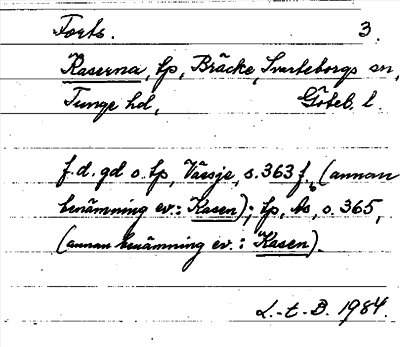 Forts. 3.
Kaserna, tp, Bräcke, Svarteborgs sn,
Tunge hd, Göteb. l.
f.d. gd o. tp, Vässje, s. 363 f, (annan
benämning ev.: Kasen); tp, ib, s. 365,
(annan benämning ev.: Kasen).
L.-t-B. 1984.